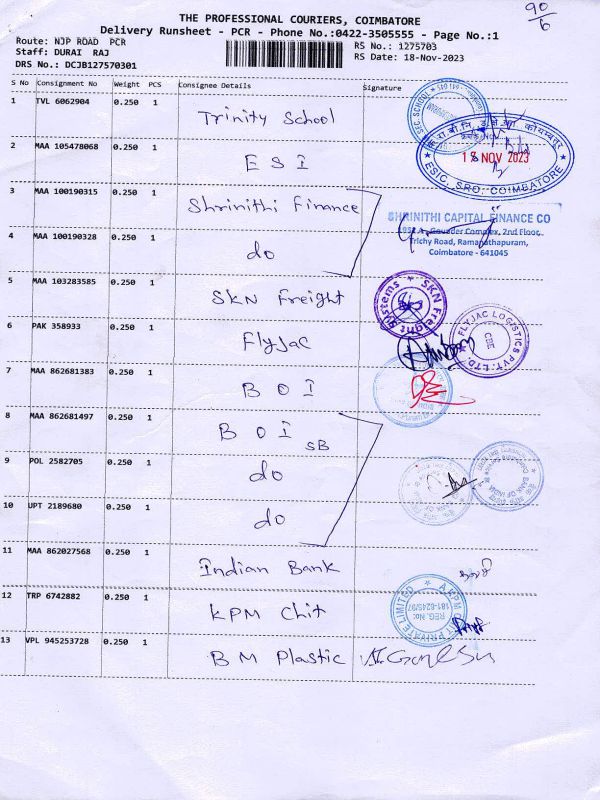 90
6
THE PROFESSIONAL COURIERS, COIMBATORE
Delivery Runsheet - PCR - Phone No.:0422-3505555 - Page No.:1
Route: NJP ROAD PCR
Staff: DURAI RAJ
DRS No.: DCJB127570301
RS No.: 1275703
RS Date: 18-Nov-2023
S No Consignment No Weight PCS Consignee Details Signature
1 TVL 6062904 0.250 1 Trinity School
2 MAA 105478068 0.250 1 E S I
18 NOV 2023
ESIC, SRO, COIMBATORE
3 MAA 100190315 0.250 1 Shrinithi Finance
SHRINITHI CAPITAL FINANCE CO
Gounder Complex, 2nd Floor,
Trichy Road, Ramanathapuram,
Coimbatore - 641045
4 MAA 100190328 0.250 1 do
5 MAA 103283585 0.250 1 SKN Freight
SKN Freight Systems
6 PAK 358933 0.250 1 FlyJac
FLYJAC LOGISTICS PVT. LTD
CBE
7 MAA 862681383 0.250 1 B O I
8 MAA 862681497 0.250 1 B O I SB
9 POL 2582705 0.250 1 do
10 UPT 2189680 0.250 1 do
BANK OF INDIA
11 MAA 862027568 0.250 1 Indian Bank
12 TRP 6742882 0.250 1 KPM Chit
PRIVATE LIMITED
REG. No:
181-6245/97
13 VPL 945253728 0.250 1 B M Plastic